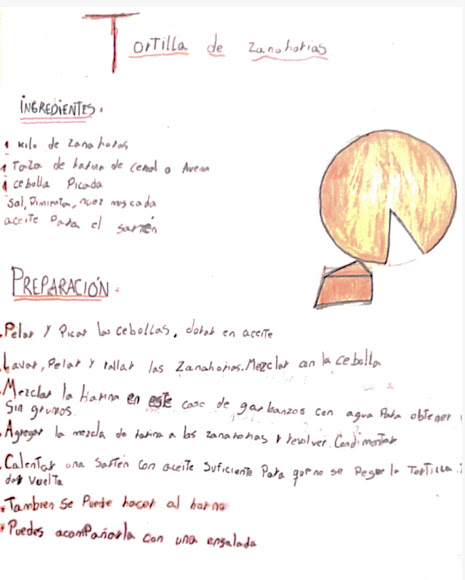 Tortilla de Zanahorias
INGREDIENTES.
1 Kilo de zanahorias
1 Taza de harina de cereal o Avena
1 cebolla Picada
Sal, Pimienta, nuez moscada
aceite Para el sartén
PREPARACIÓN.
.Pelar y Picar las cebollas, dorar en aceite
.Lavar, Pelar y rallar las Zanahorias. Mezclar con la cebolla
.Mezclar la Harina en este caso de garbanzos con agua Para obtener
Sin grumos.
.Agregar la mezcla de harina a las zanahorias y revolver. Condimentar
.Calentar una Sartén con aceite Suficiente Para que no se Pegue la Tortilla.
dar vuelta
.Tambien Se Puede hacer al horno
.Puedes acompañarla con una ensalada